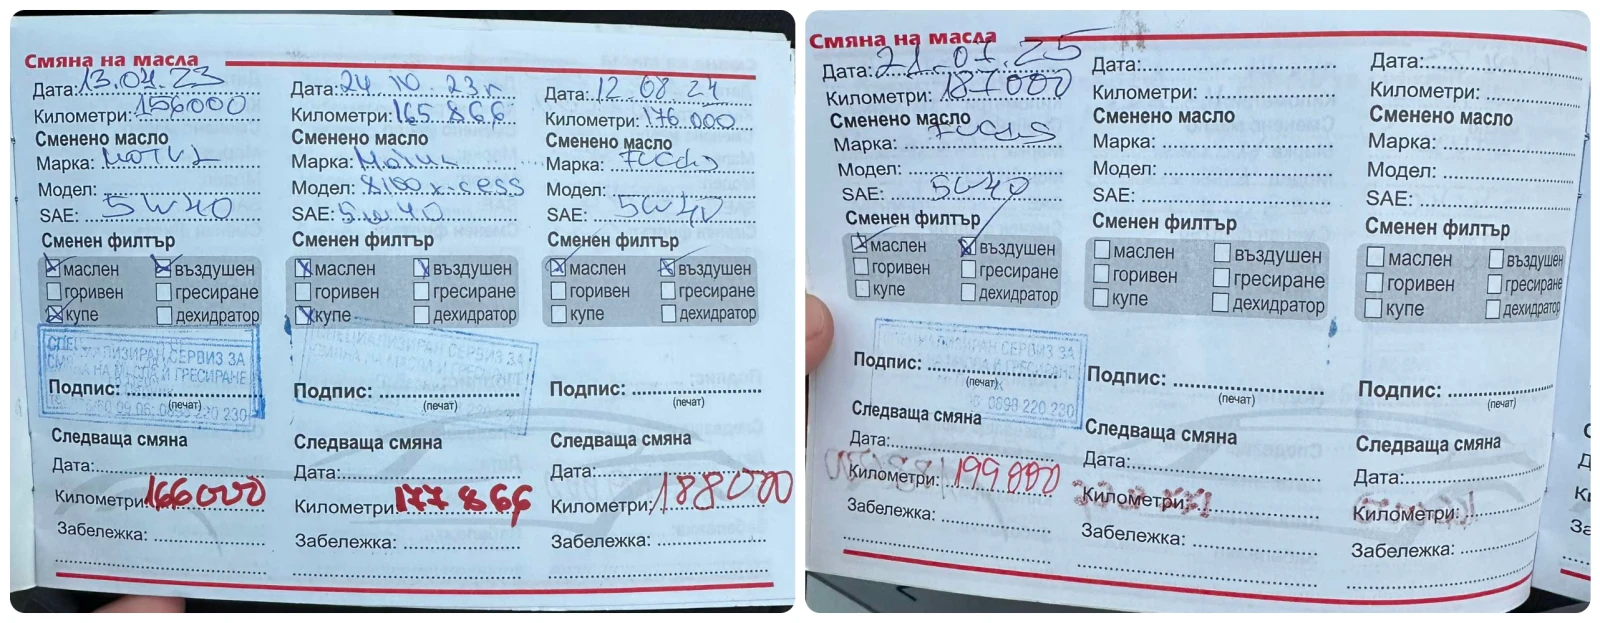 Смяна на масла
Дата: 13.04.23
Километри: 156000
Сменено масло
Марка: MOTUL
Модел:
SAE: 5W40
Сменен филтър
маслен въздушен
горивен гресиране
купе дехидратор
СПЕЦИАЛИЗИРАН СЕРВИЗ ЗА
СМЯНА НА МАСЛА И ГРЕСИРАНЕ
0898 220 230
Подпис:
(печат)
Следваща смяна
Дата:
Километри: 166000
Забележка:
Дата: 24.10.23г
Километри: 165 866
Сменено масло
Марка: Motul
Модел: 8100 x-cess
SAE: 5w40
Сменен филтър
маслен въздушен
горивен гресиране
купе дехидратор
СПЕЦИАЛИЗИРАН СЕРВИЗ ЗА
СМЯНА НА МАСЛА И ГРЕСИРАНЕ
Подпис:
(печат)
Следваща смяна
Дата:
Километри: 177 866
Забележка:
Дата: 12.08.24
Километри: 176 000
Сменено масло
Марка: Fuchs
Модел:
SAE: 5W40
Сменен филтър
маслен въздушен
горивен гресиране
купе дехидратор
Подпис:
(печат)
Следваща смяна
Дата:
Километри: 188000
Забележка:
Смяна на масла
Дата: 21.07.25
Километри: 187000
Сменено масло
Марка: Fuchs
Модел:
SAE: 5W40
Сменен филтър
маслен въздушен
горивен гресиране
купе дехидратор
СПЕЦИАЛИЗИРАН СЕРВИЗ ЗА
СМЯНА НА МАСЛА И ГРЕСИРАНЕ
0898 220 230
Подпис:
(печат)
Следваща смяна
Дата:
Километри: 199000
Забележка:
Дата:
Километри:
Сменено масло
Марка:
Модел:
SAE:
Сменен филтър
маслен въздушен
горивен гресиране
купе дехидратор
Подпис:
(печат)
Следваща смяна
Дата:
Километри:
Забележка:
Дата:
Километри:
Сменено масло
Марка:
Модел:
SAE:
Сменен филтър
маслен въздушен
горивен гресиране
купе дехидратор
Подпис:
(печат)
Следваща смяна
Дата:
Километри:
Забележка: